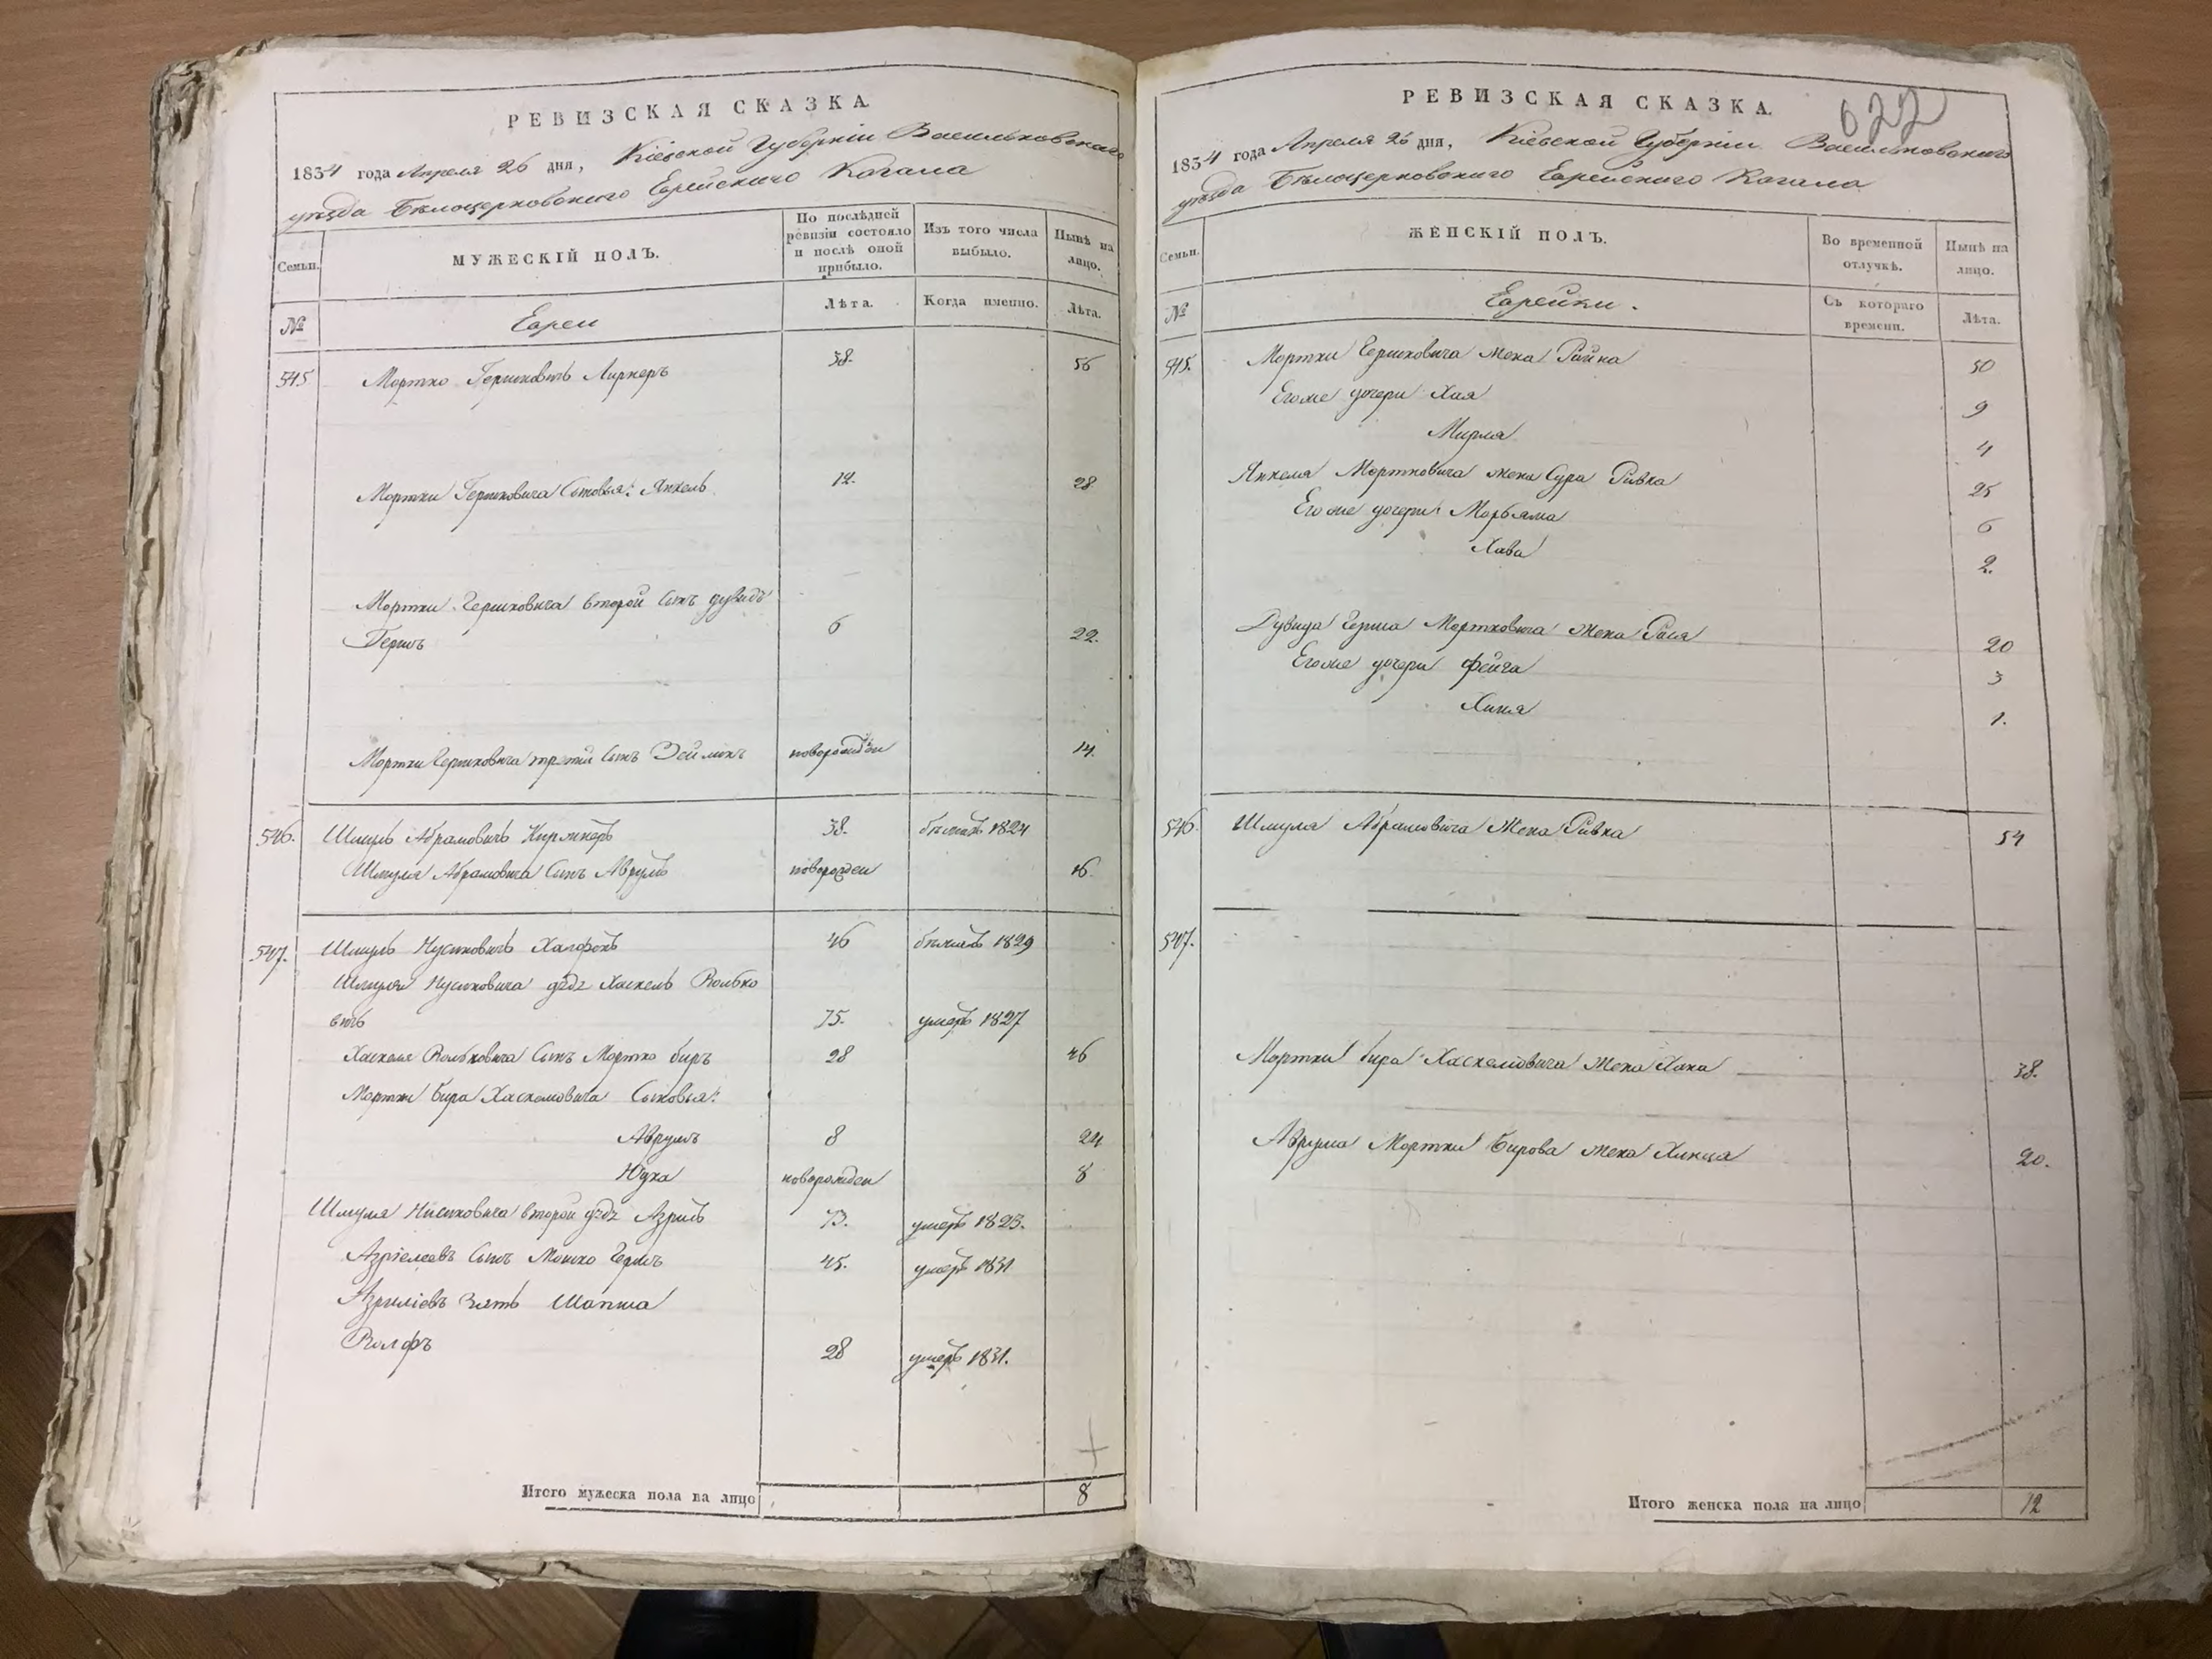 РЕВИЗСКАЯ СКАЗКА.
1834 года Апреля 26 дня, Кіевской Губерніи Васильковскаго
уѣзда Бѣлоцерковскаго Еврейскаго Кагала
Семьи.
МУЖЕСКІЙ ПОЛЪ.
По послѣдней ревизіи состояло и послѣ оной прибыло.
Изъ того числа выбыло.
Нынѣ на лицо.
№
Евреи
Лѣта.
Когда именно.
Лѣта.
545 Мортко Гершковичъ Лирнеръ 38. 56
Мортки Гершковича Сыновья: Янкель 12. 28
Мортки Гершковича второй сынъ Дувидъ
Гершъ 6 22.
Мортки Гершковича третий сынъ Зейликъ новорожден 14.
546. Шмуль Абрамовичъ Киржнеръ 38. бѣжалъ 1824
Шмуля Абрамовича сынъ Аврумъ новорожден 16.
547. Шмуль Нусиновичъ 46 бѣжалъ 1829
Шмуля Нусиновича дѣдъ Хаскель Волько
вичъ 75. умеръ 1827
Хаскеля Вольковича сынъ Мортко биръ 28 46
Мортки бира Хаскелевича Сыновья:
Аврумъ 8 24
Нуха новорожден 8
Шмуля Нусиновича второй дѣдъ Азриль 73. умеръ 1823.
Азріелевъ сынъ Мошко Гершъ 45. умеръ 1831
Азриліевъ зять Шапша
Волфъ 28 умеръ 1831.
Итого мужеска пола на лицо 8
РЕВИЗСКАЯ СКАЗКА.
622
1834 года Апреля 26 дня, Кіевской Губерніи Васильковскаго
уѣзда Бѣлоцерковскаго Еврейскаго Кагала
Семьи.
ЖЕНСКІЙ ПОЛЪ.
Во временной отлучкѣ.
Нынѣ на лицо.
№
Еврейки.
Съ котораго времени.
Лѣта.
545. Мортки Гершковича жена Райна 50
Его же дочери Хая 9
Мирля 4
Янкеля Мортковича жена Сура Ривка 25
Его же дочери Морьяма 6
Хава 2.
Дувида Герша Мортковича жена Рася 20
Его же дочери Фейга 3
1.
546. Шмуля Абрамовича жена Ривка 54
547.
Мортки бира Хаскелевича жена Хана 38.
Аврума Мортки Бирова жена Хинца 20.
Итого женска пола на лицо 12